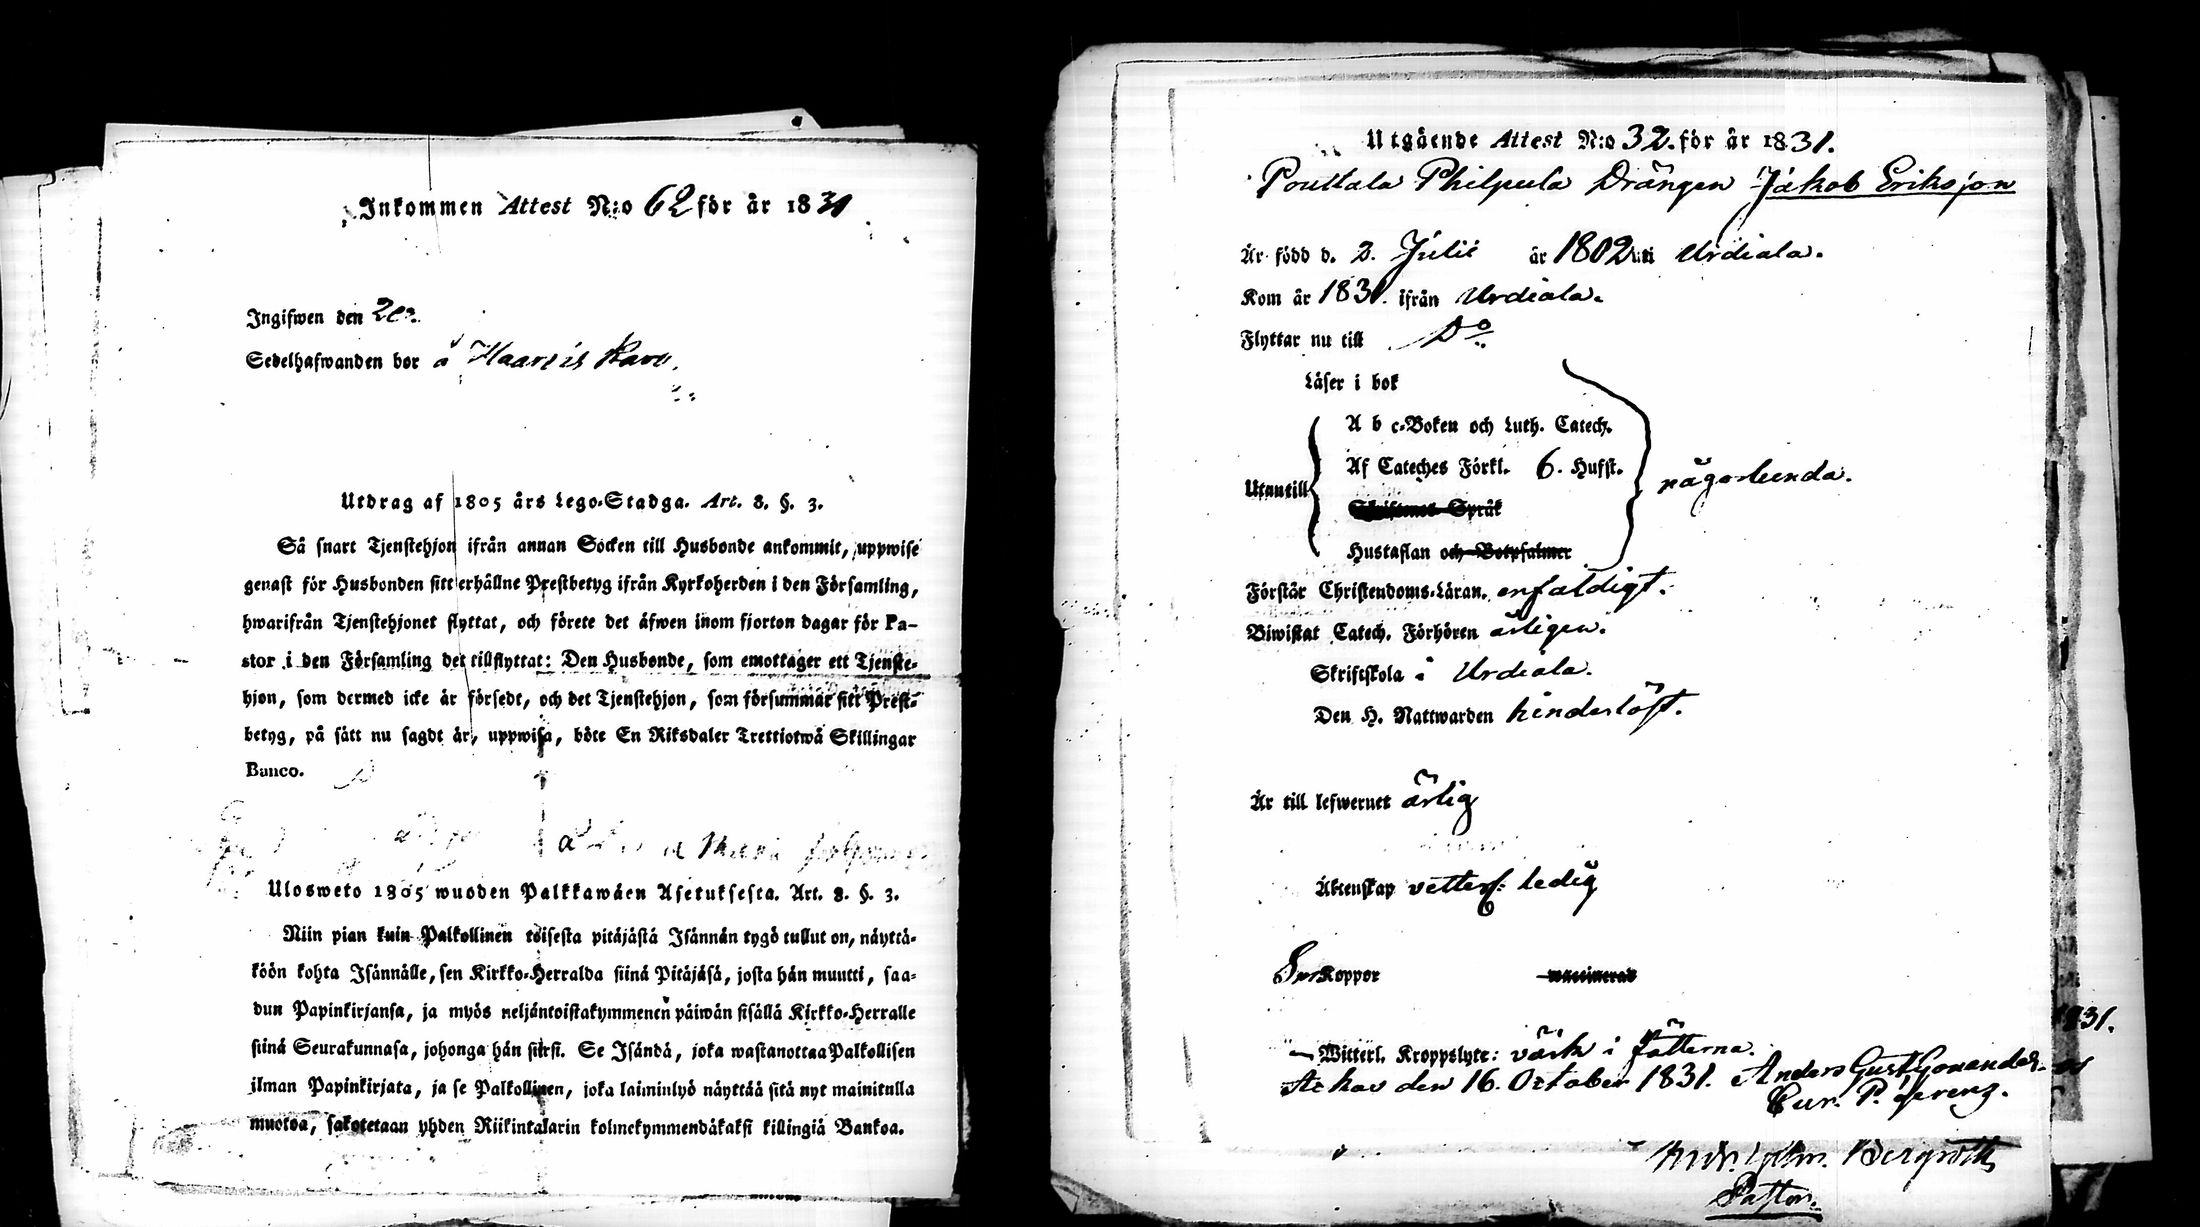 Inkommen Attest N:o 62 för år 1831
Ingifwen den
Sedelhafwanden bor å
Utdrag af 1805 års Lego-Stadga. Art. 8. §. 3.
Så snart Tjenstehjon ifrån annan Socken till Husbonde ankommit, uppwise
genast för Husbonden sitt erhållne Prestbetyg ifrån Kyrkoherden i den Församling,
hwarifrån Tjenstehjonet flyttat, och förete det äfwen inom fjorton dagar för Pa-
stor i den Församling det tillflyttat: Den Husbonde, som emottager ett Tjenste-
hjon, som dermed icke är försedt, och det Tjenstehjon, som försummar sitt Prest-
betyg, på sätt nu sagdt är, uppwisa, böte En Riksdaler Trettiotwå Skillingar
Banco.
Ulosweto 1805 wuoden Palkkawäen Asetuksesta. Art. 8. §. 3.
Niin pian kuin Palkollinen toisesta pitäjästä Isännän tygö tullut on, näyttä-
köön kohta Isännälle, sen Kirkko-Herralda siinä Pitäjäsä, josta hän muutti, saa-
dun Papinkirjansa, ja myös neljäntoistakymmenen päiwän sisällä Kirkko-Herralle
siinä Seurakunnasa, johonga hän siirsi. Se Isändä, joka wastanottaa Palkollisen
ilman Papinkirjata, ja se Palkollinen, joka laiminlyö näyttää sitä nyt mainitulla
muotoa, sakotetaan yhden Riikintalarin kolmekymmendäkaksi killingiä Bankoa.
Utgående Attest N:o 32. för år 1831.
Pouttala Philpula Drängen Jakob Eriksson
Är född d. 2. Julii år 1802 uti Urdiala.
Kom år 1831. ifrån Urdiala.
Flyttar nu till Do
Läser i bok
A b c-Boken och Luth. Catech.
Af Cateches Förkl. 6. Hufst.
någorlunda.
Utantill
Skriftenes Språk
Hustaflan och Botpsalmer
Förstår Christendoms-Läran. enfaldigt.
Biwistat Catech. Förhören årligen.
Skriftskola i Urdiala.
Den H. Nattwarden hinderlöst.
Är till lefwernet ärlig
Äktenskap vetterl: ledig
Koppor vaccinerad
Witterl. Kroppslyte: värk i fötterna.
den 16. October 1831. Anders Gust
Cur. P. gerens.
1831.
Bergroth
Pastor.